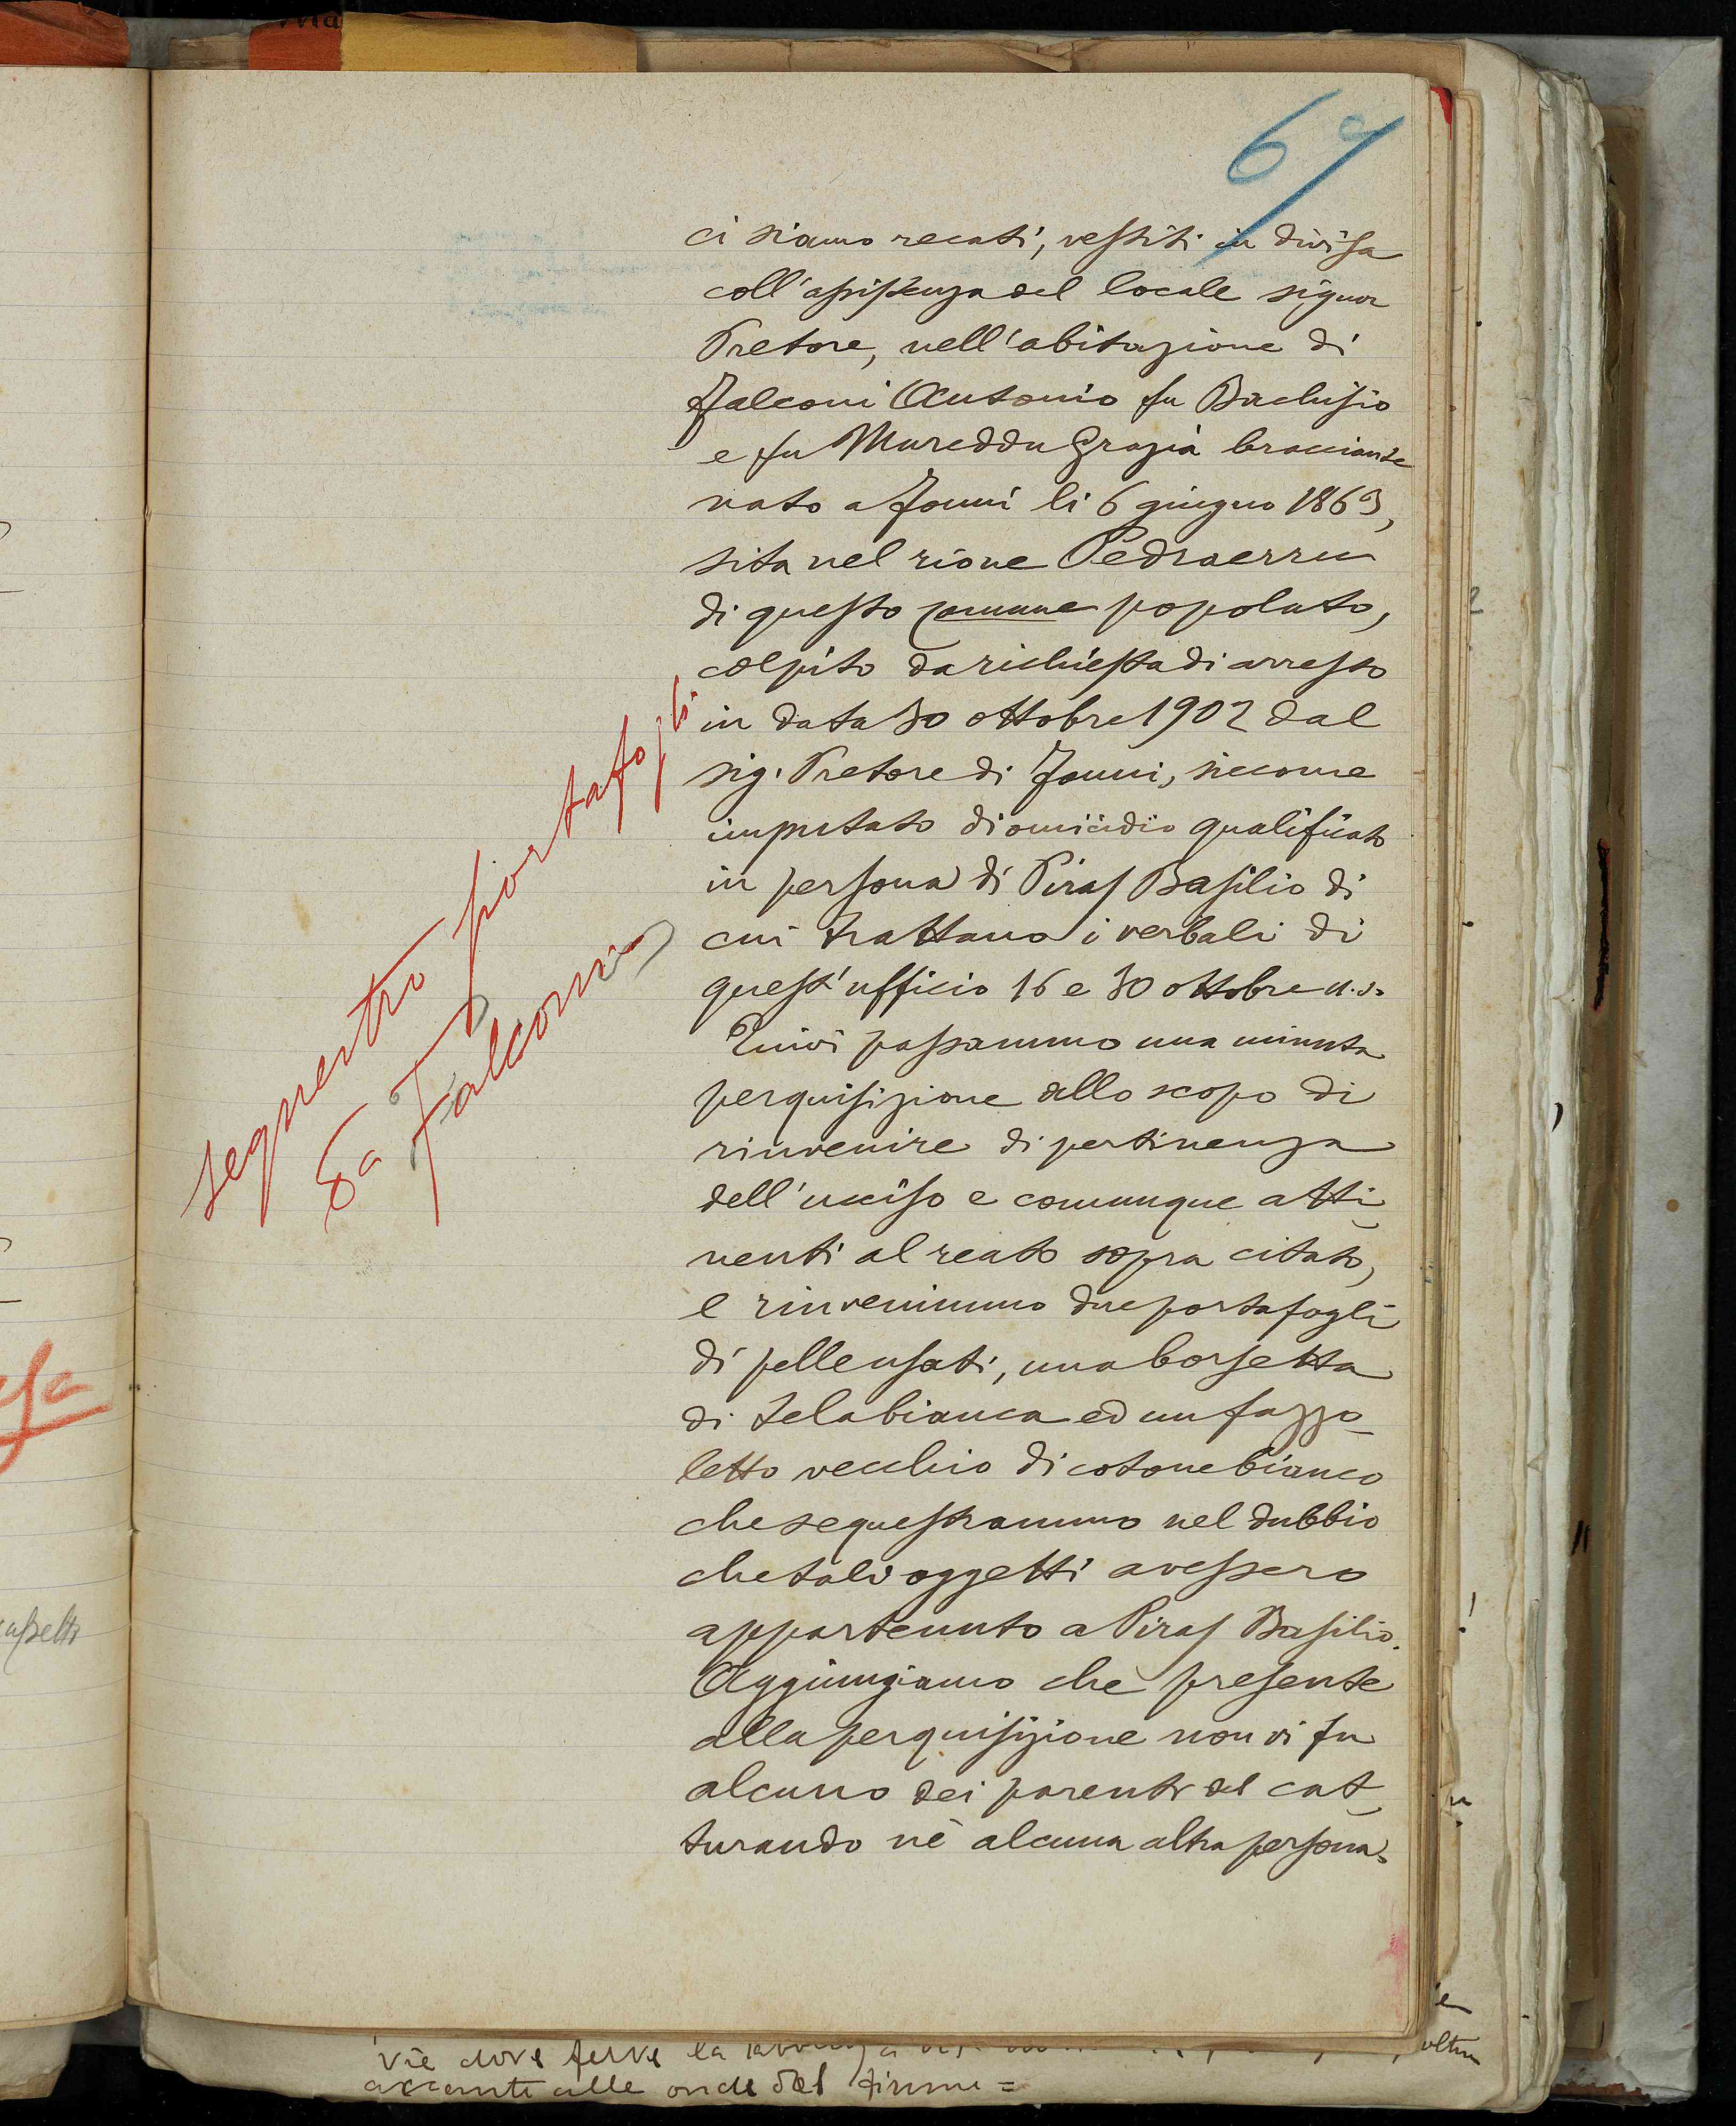 69
ci siamo recati, vestiti in divisa
coll'assistenza del locale signor
Pretore, nell'abitazione di
Falconi Antonio fu Bachisio
e fu Mureddu Grazia bracciante
nato a Fonni li 6 giugno 1869,
sita nel rione Pedraerru
di questo comune popolato,
colpito da richiesta di arresto
in data 30 ottobre 1902 dal
sig. Pretore di Fonni, siccome
imputato di omicidio qualificato
in persona di Piras Basilio di
cui trattano i verbali di
quest'ufficio 16 e 30 ottobre u.s.
Quivi passammo una minuta
perquisizione allo scopo di
rinvenire di pertinenza
dell'ucciso e comunque atti-
nenti al reato sopra citato,
e rinvenimmo due portafogli
di pelle usati, una borsetta
di tela bianca ed un fazzo-
letto vecchio di cotone bianco
che sequestrammo nel dubbio
che tali oggetti avessero
appartenuto a Piras Basilio.
Aggiungiamo che presente
alla perquisizione non vi fu
alcuno dei parenti del cat-
turando nè alcuna altra persona.
sequestro portafogli
8a Falconi
vie dove ferve la
alle onde del fiume =